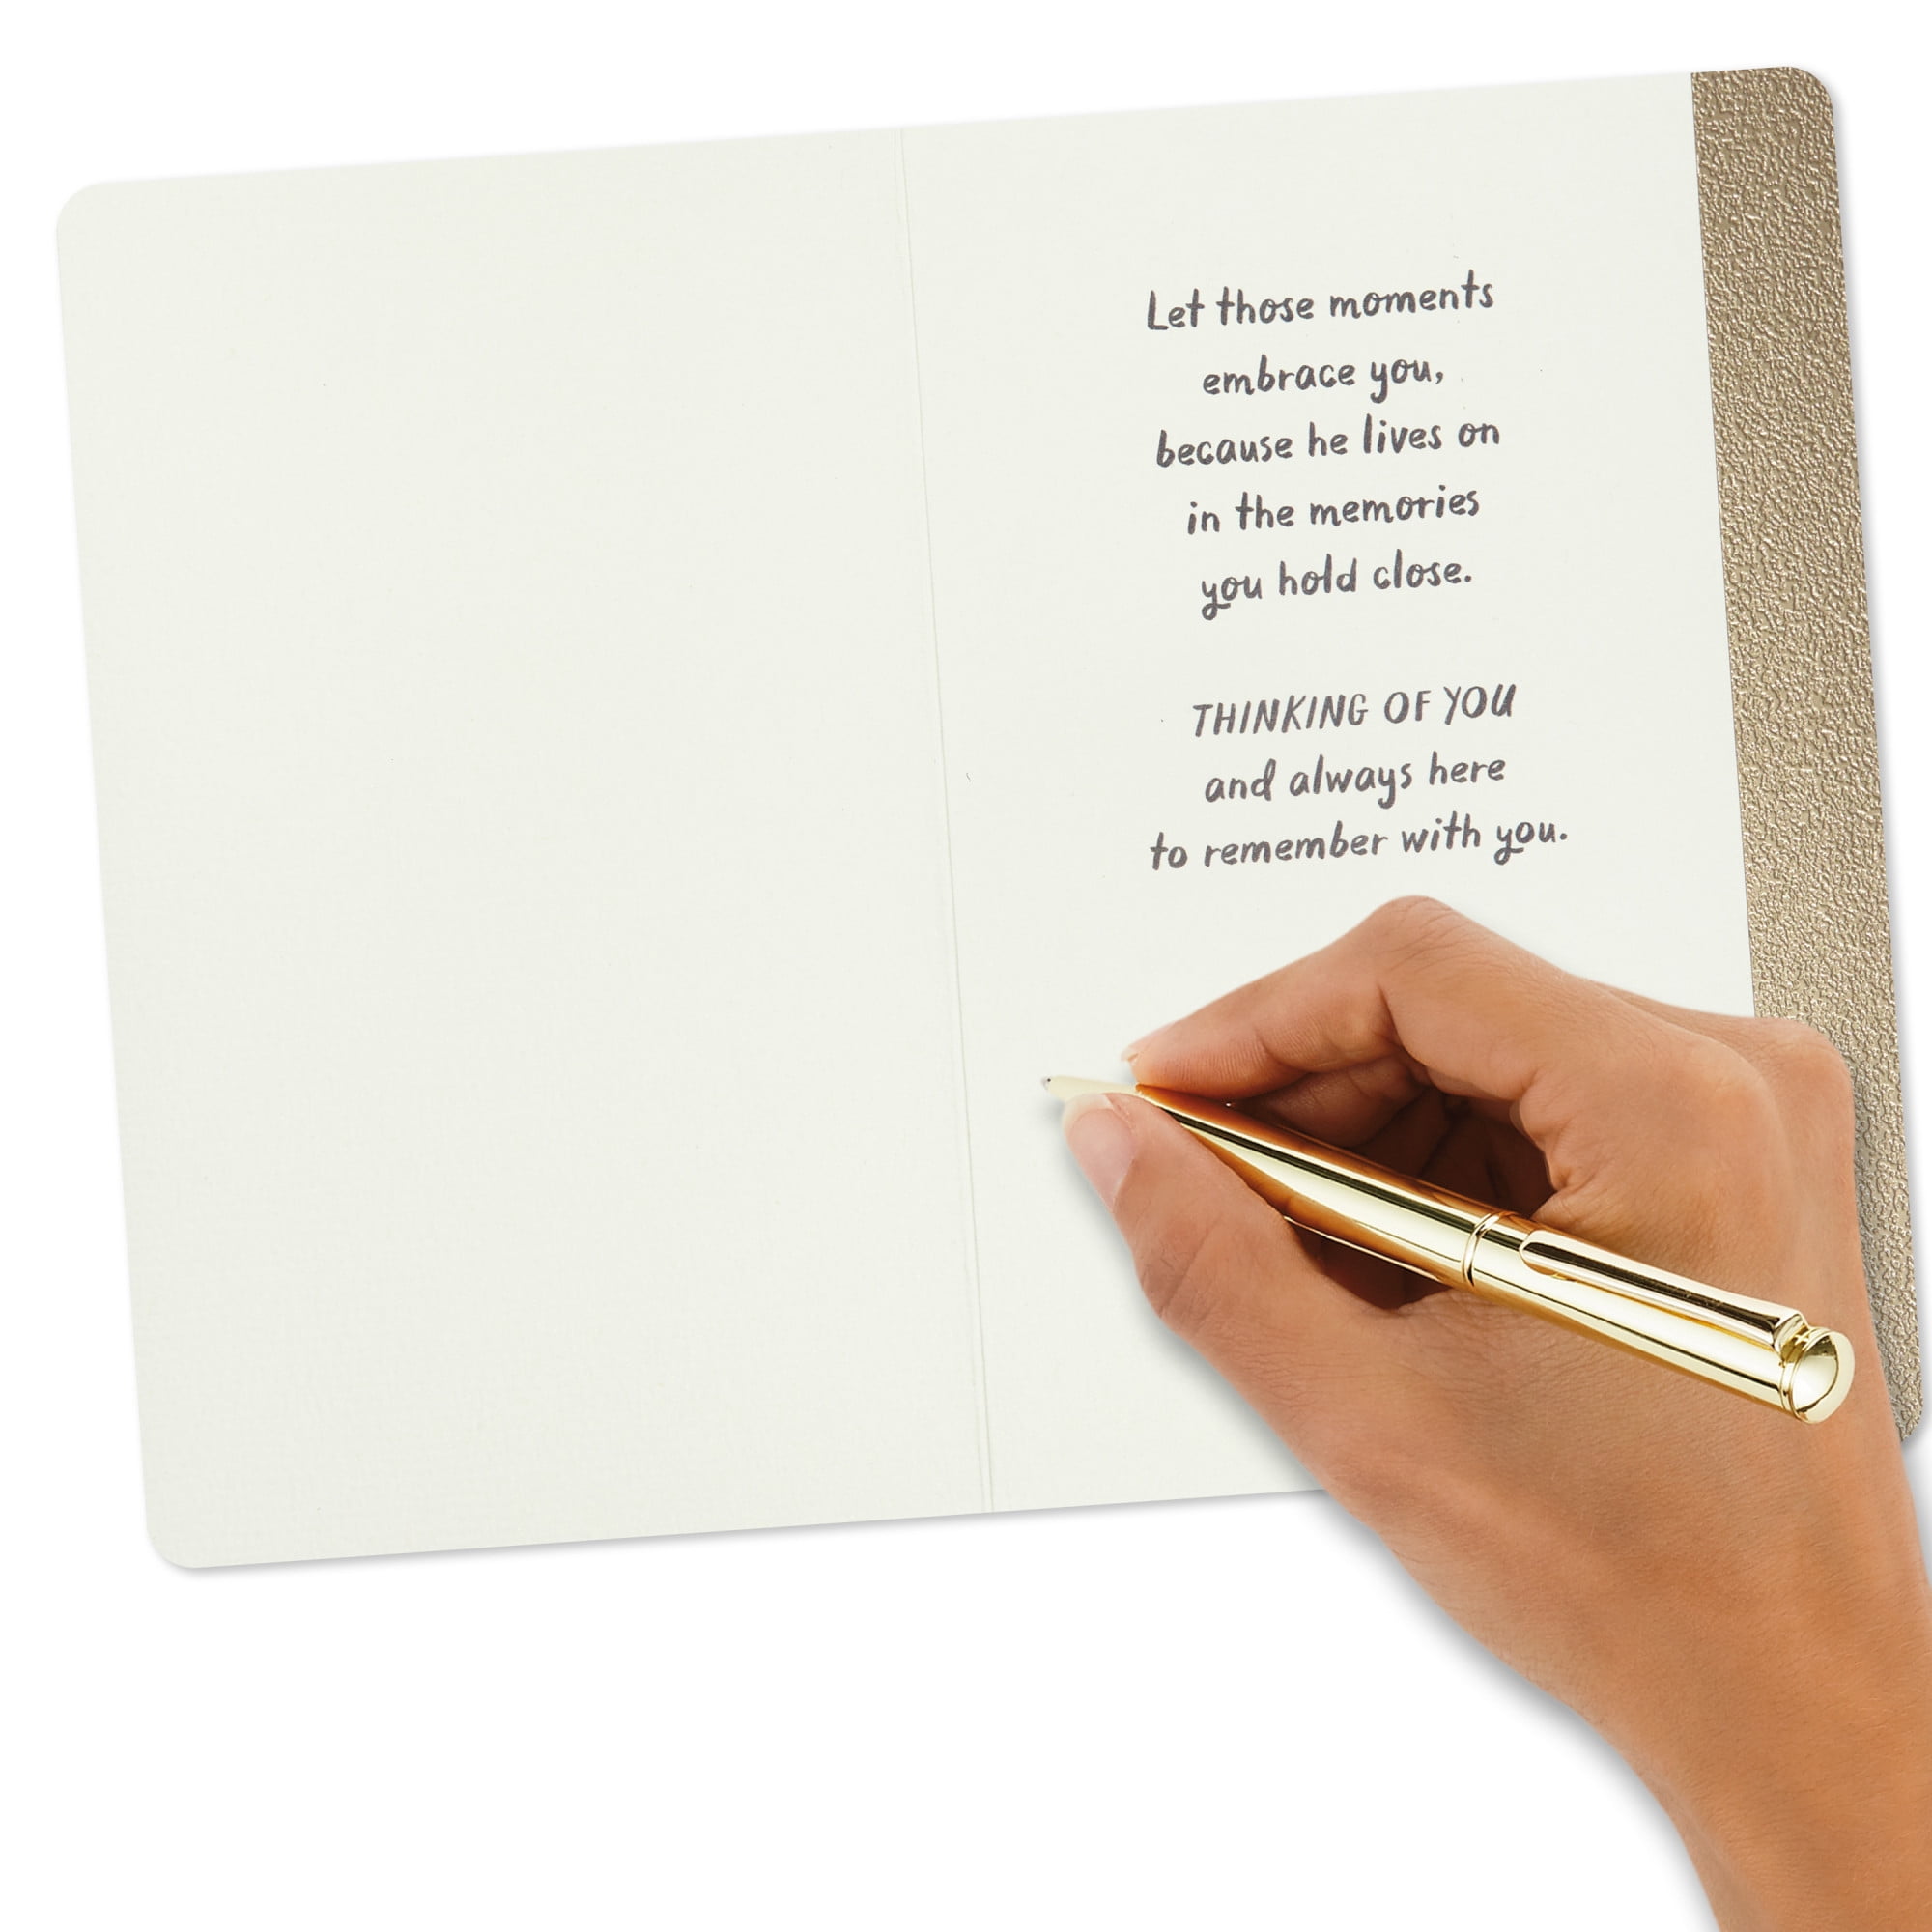 Let those moments
embrace you,
because he lives on
in the memories
you hold close.
THINKING OF YOU
and always here
to remember with you.